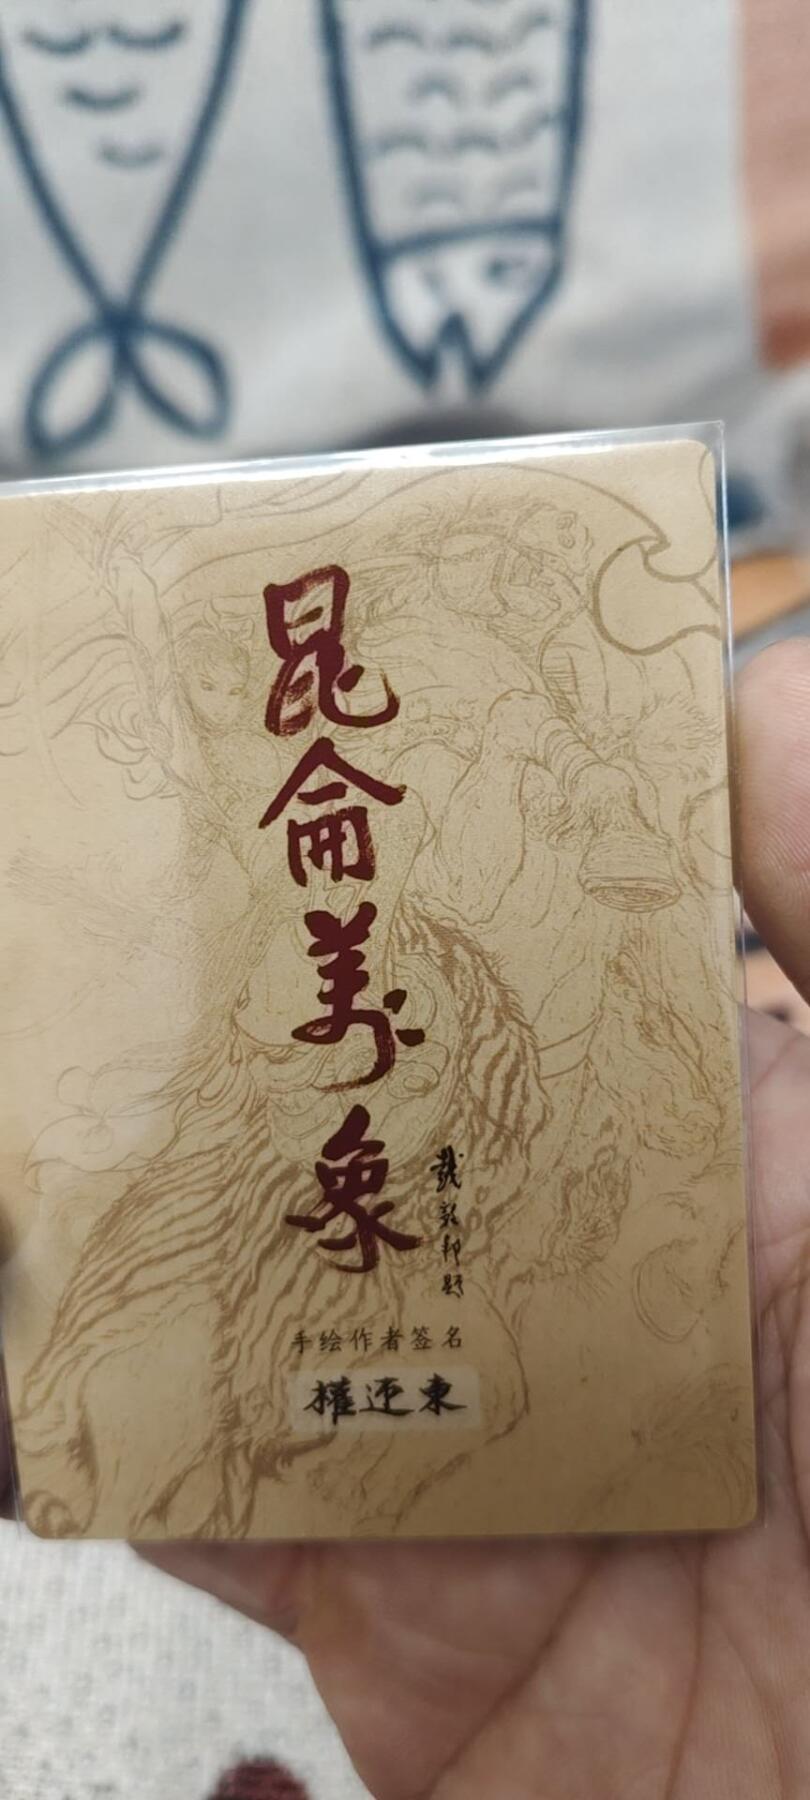 昆侖萬象
戴敦邦題
手绘作者签名
權迎東